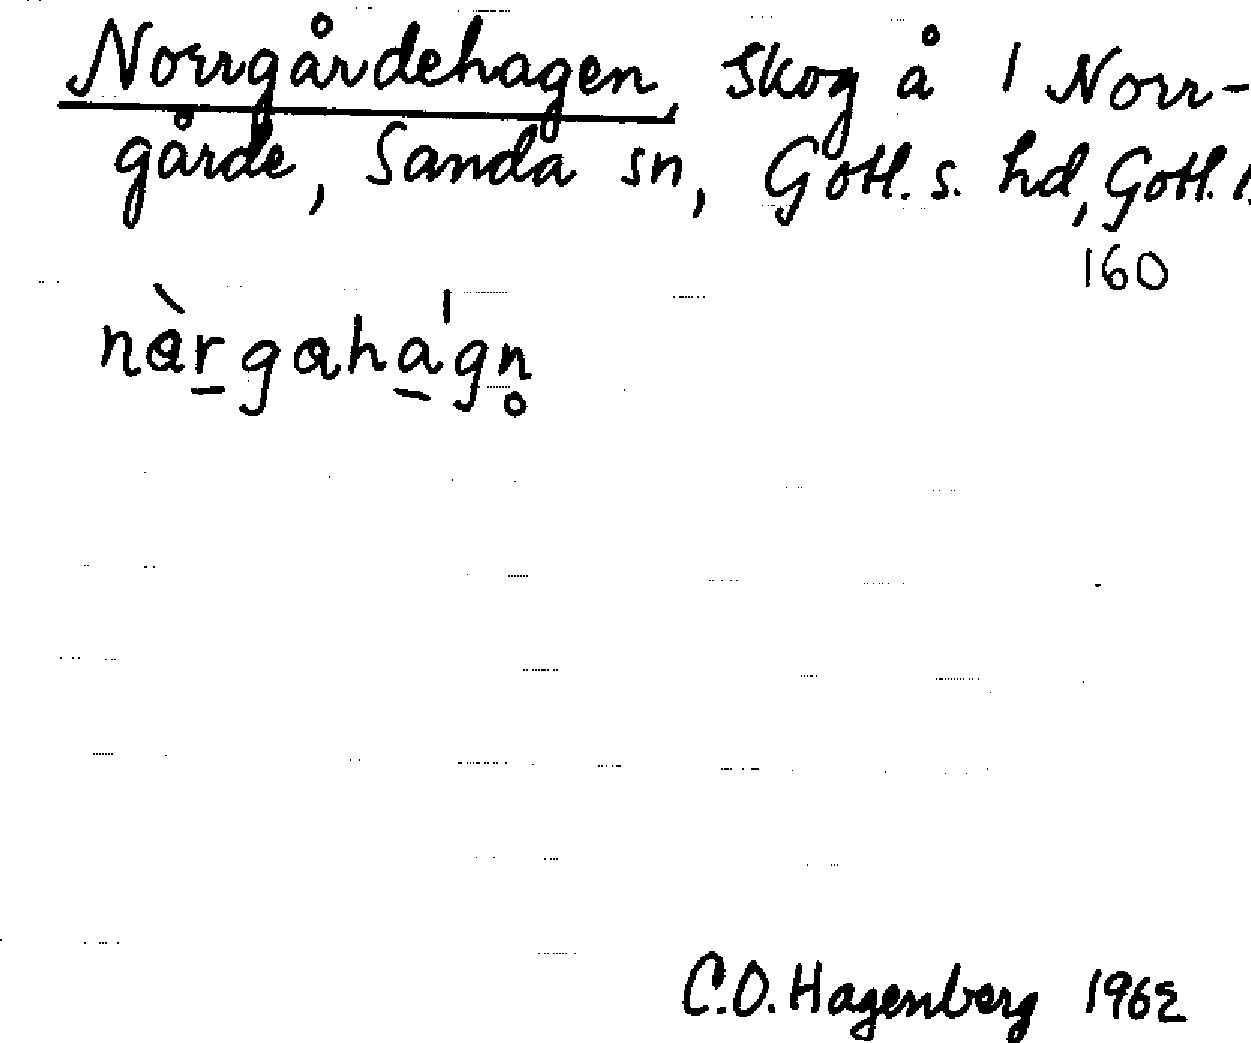 Norrgårdehagen, skog å 1 Norr-
gårde, Sanda sn, Gotl. s. hd, Gotl. l.
160
nàrgaha̍gn̥
C.O. Hagenberg 1962